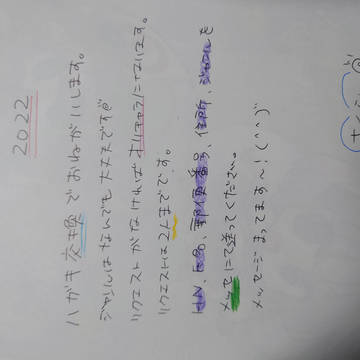 2022
ハガキ交換でおねがいします。
ジャンルはなんでも大丈夫です
リクエストがなければオリキャラになります。
リクエストは2人までです。
HN、氏名、郵便番号、住所、ジャンルを
メッセにて送ってください。
メッセージまってます〜!(^^)